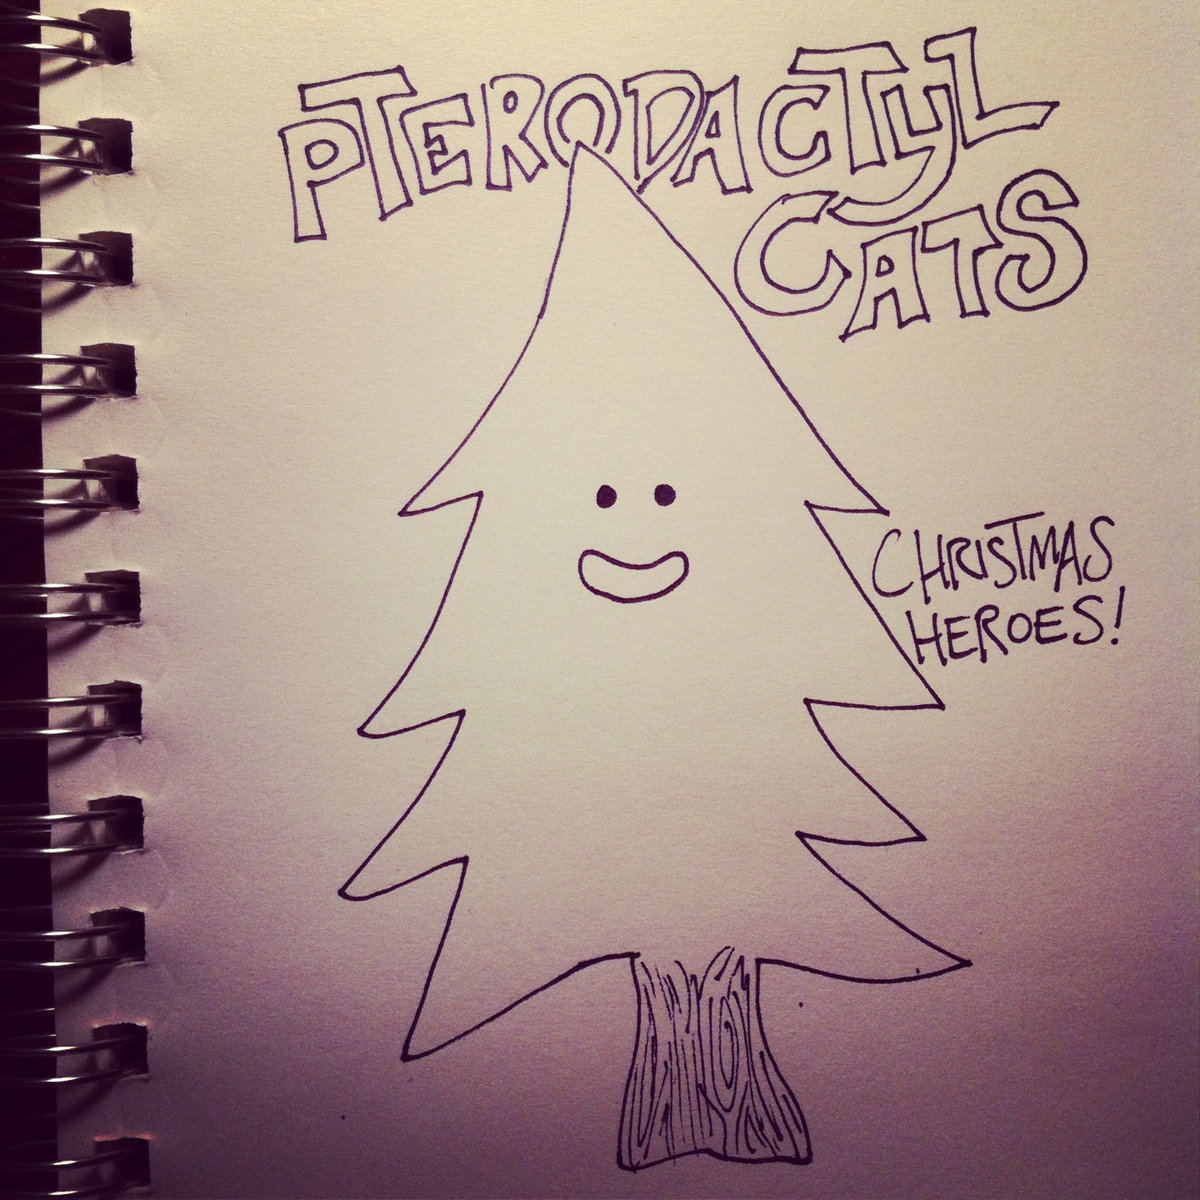 PTERODACTYL
CATS
CHRISTMAS
HEROES!